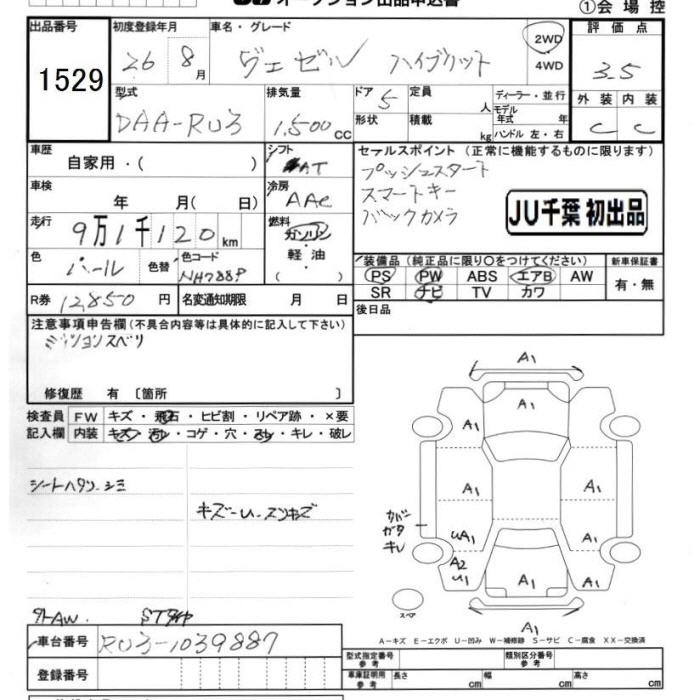 オークション出品申込書
①会場控
出品番号
1529
初度登録年月
26 8月
車名・グレード
ヴェゼル ハイブリット
2WD
4WD
評価点
3.5
外装 内装
C C
型式
DAA-RU3
排気量
1,500cc
ドア 5
形状
定員 人
積載 kg
ディーラー・並行
モデル年式 年
ハンドル 左・右
車歴
自家用・( )
シフト
AT
冷房
AAC
車検
年 月( 日)
走行
9万1千120km
燃料
ガソリン
軽油
( )
色
パール
色替
色コード
NH788P
R券 12,850円
名変通知期限 月 日
セールスポイント (正常に機能するものに限ります)
プッシュスタート
スマートキー
バックカメラ
JU千葉 初出品
装備品 (純正品に限り○をつけてください)
新車保証書
PS PW ABS エアB AW
SR ナビ TV カワ
有・無
後日品
注意事項申告欄 (不具合内容等は具体的に記入して下さい)
ミッションスベリ
修復歴 有 〔箇所 〕
検査員
記入欄
FW キズ・飛石・ヒビ割・リペア跡・×要
内装 キズ・汚れ・コゲ・穴・スレ・キレ・破レ
シートヘタリ・シミ
キズ-U・スリキズ
カバー
ガタ
キレ
A1
A1
A1
A1
A1
A1
UA1
A1
A2
U1
A1
A1
A1
スペア
A-キズ E-エクボ U-凹み W-補修跡 S-サビ C-腐食 XX-交換済
車台番号 RU3-1039887
登録番号
型式指定番号 参考
類別区分番号 参考
車庫証明用 参考 長さ cm 幅 cm 高さ cm